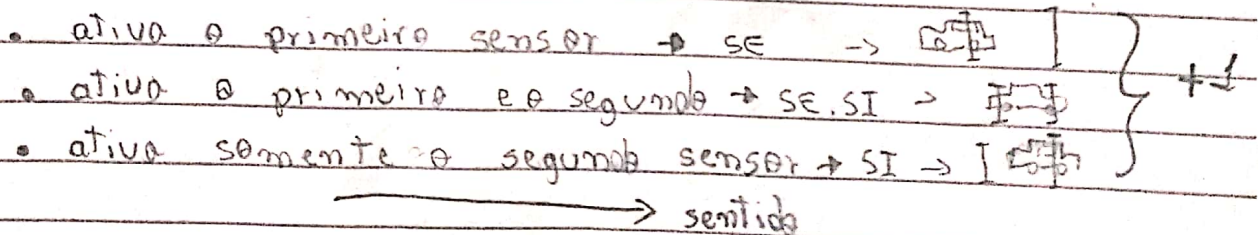 • ativa o primeiro sensor → SE → ] +1
• ativa o primeiro e o segundo → SE.SI →
• ativa somente o segundo sensor → SI → [
→ sentido